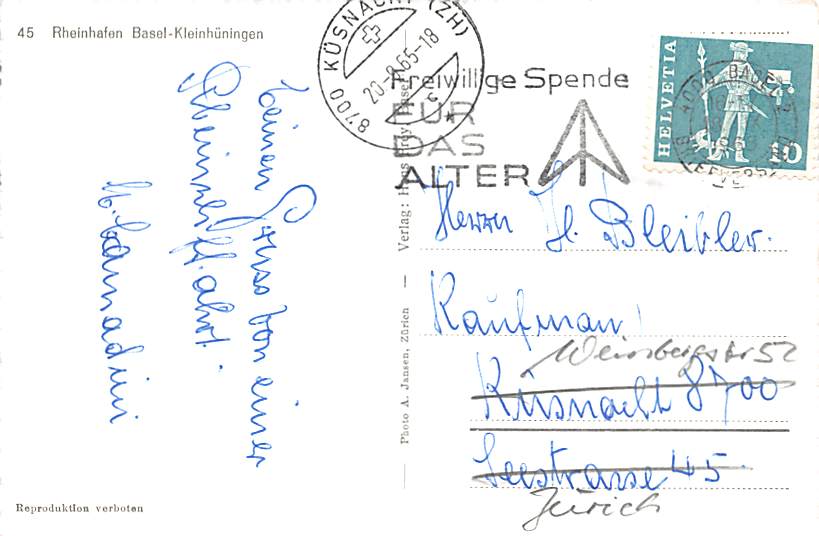 45 Rheinhafen Basel-Kleinhüningen
einen Gruss von einer
Rheinschiffahrt.
Reproduktion verboten
Photo A. Jansen, Zürich — Verlag: Hans
8700 KÜSNACHT (ZH)
20-8.65-18
Freiwillige Spende
FÜR
DAS
ALTER
HELVETIA
10
4000 BASEL
Herrn H. Bleibler.
Kaufman
Weinbergstr 52
Küsnacht 8700
Seestrasse 45.
Zürich